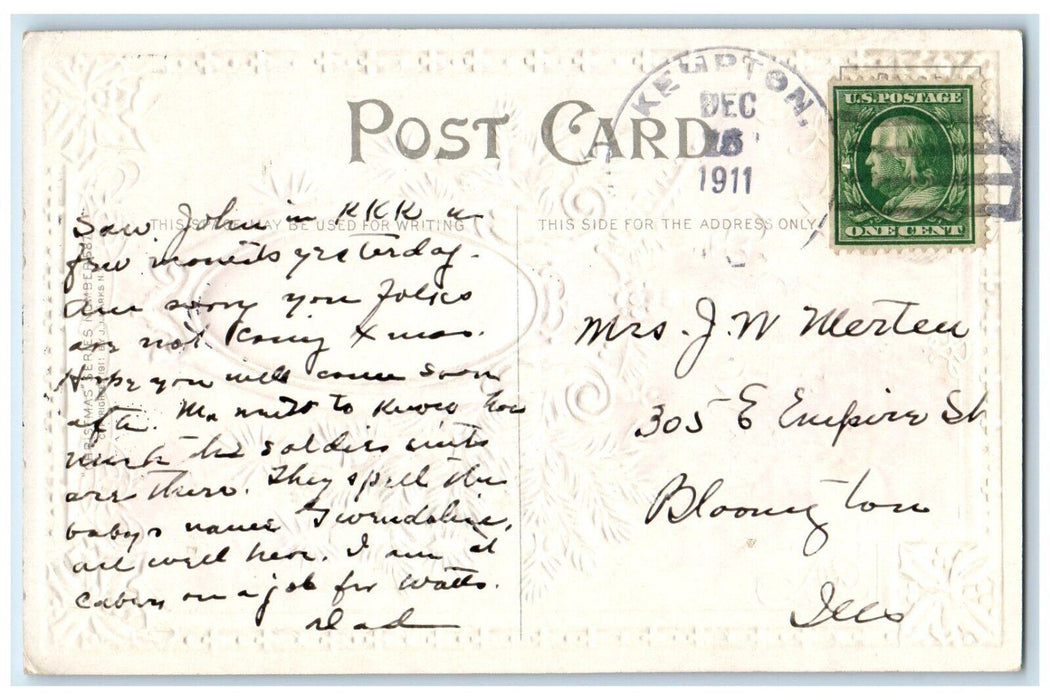 POST CARD
KEMPTON,
DEC
1911
U.S. POSTAGE
ONE CENT
THIS SPACE MAY BE USED FOR WRITING
THIS SIDE FOR THE ADDRESS ONLY
Saw John in KKK a
few moments yesterday.
am sorry you folks
are not coming Xmas.
Hope you will come soon
after. Ma wants to know how
much the soldier suits
are there. They spell the
babys name Gwendoline.
all well here. I am at
on a job for Watts.
Dad
Mrs. J. W Merten
305 E Empire St
Bloomington
Ills